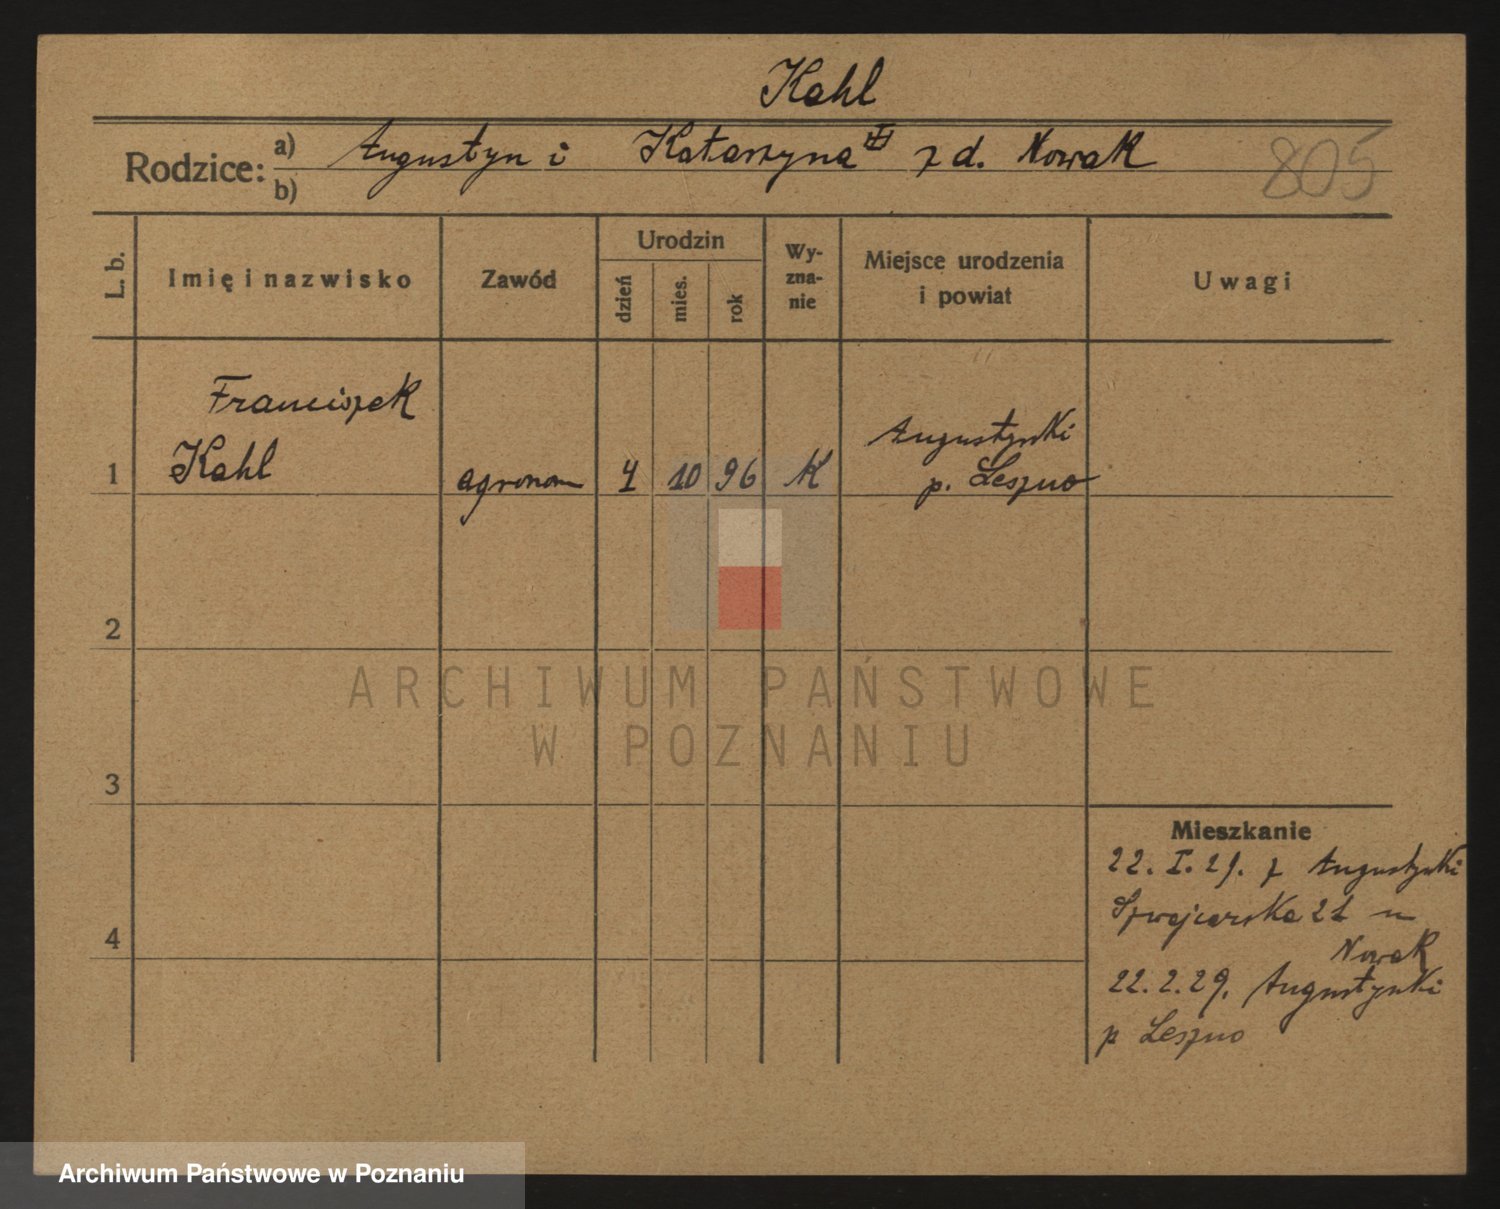 Kahl
Rodzice: a) Augustyn i Katarzyna z d. Nowak
b)
805
L. b.
Imię i nazwisko
Zawód
Urodzin
dzień
mies.
rok
Wy-
zna-
nie
Miejsce urodzenia
i powiat
Uwagi
Franciszek
1 Kahl agronom 4 10 96 K Augustynki
p. Leszno
2
3
4
ARCHIWUM PAŃSTWOWE
W POZNANIU
Mieszkanie
22. I. 29. z Augustynki
Szwajcarska 21 u
Nowak
22. 2. 29. Augustynki
p Leszno
Archiwum Państwowe w Poznaniu